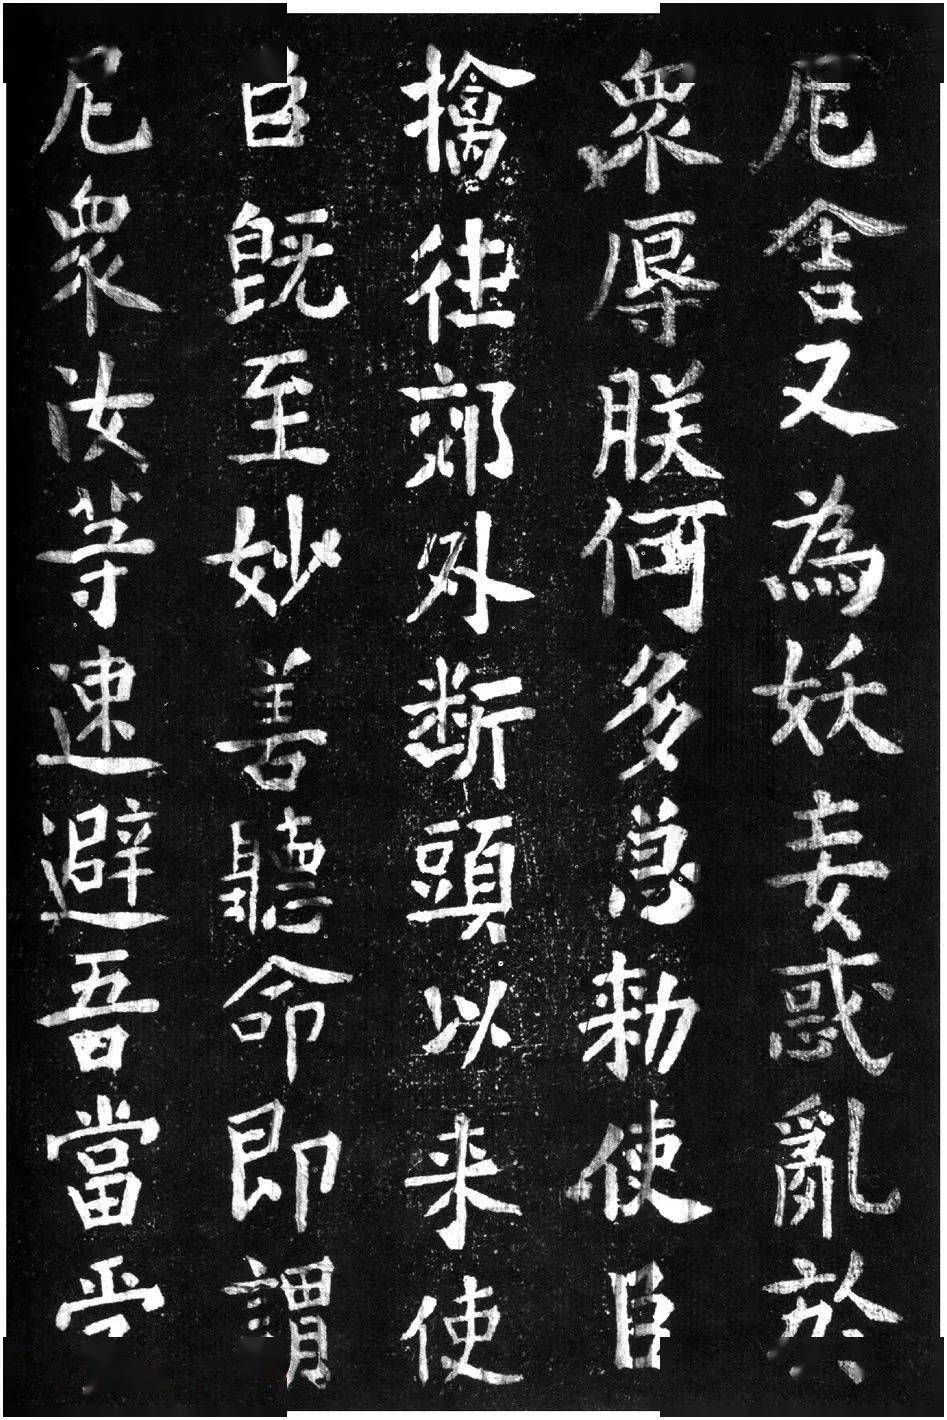 尼舍又為妖妄惑亂於
衆辱朕何多急勅使臣
擒往郊外断頭以来使
臣既至妙善聽命即謂
尼衆汝等速避吾當受